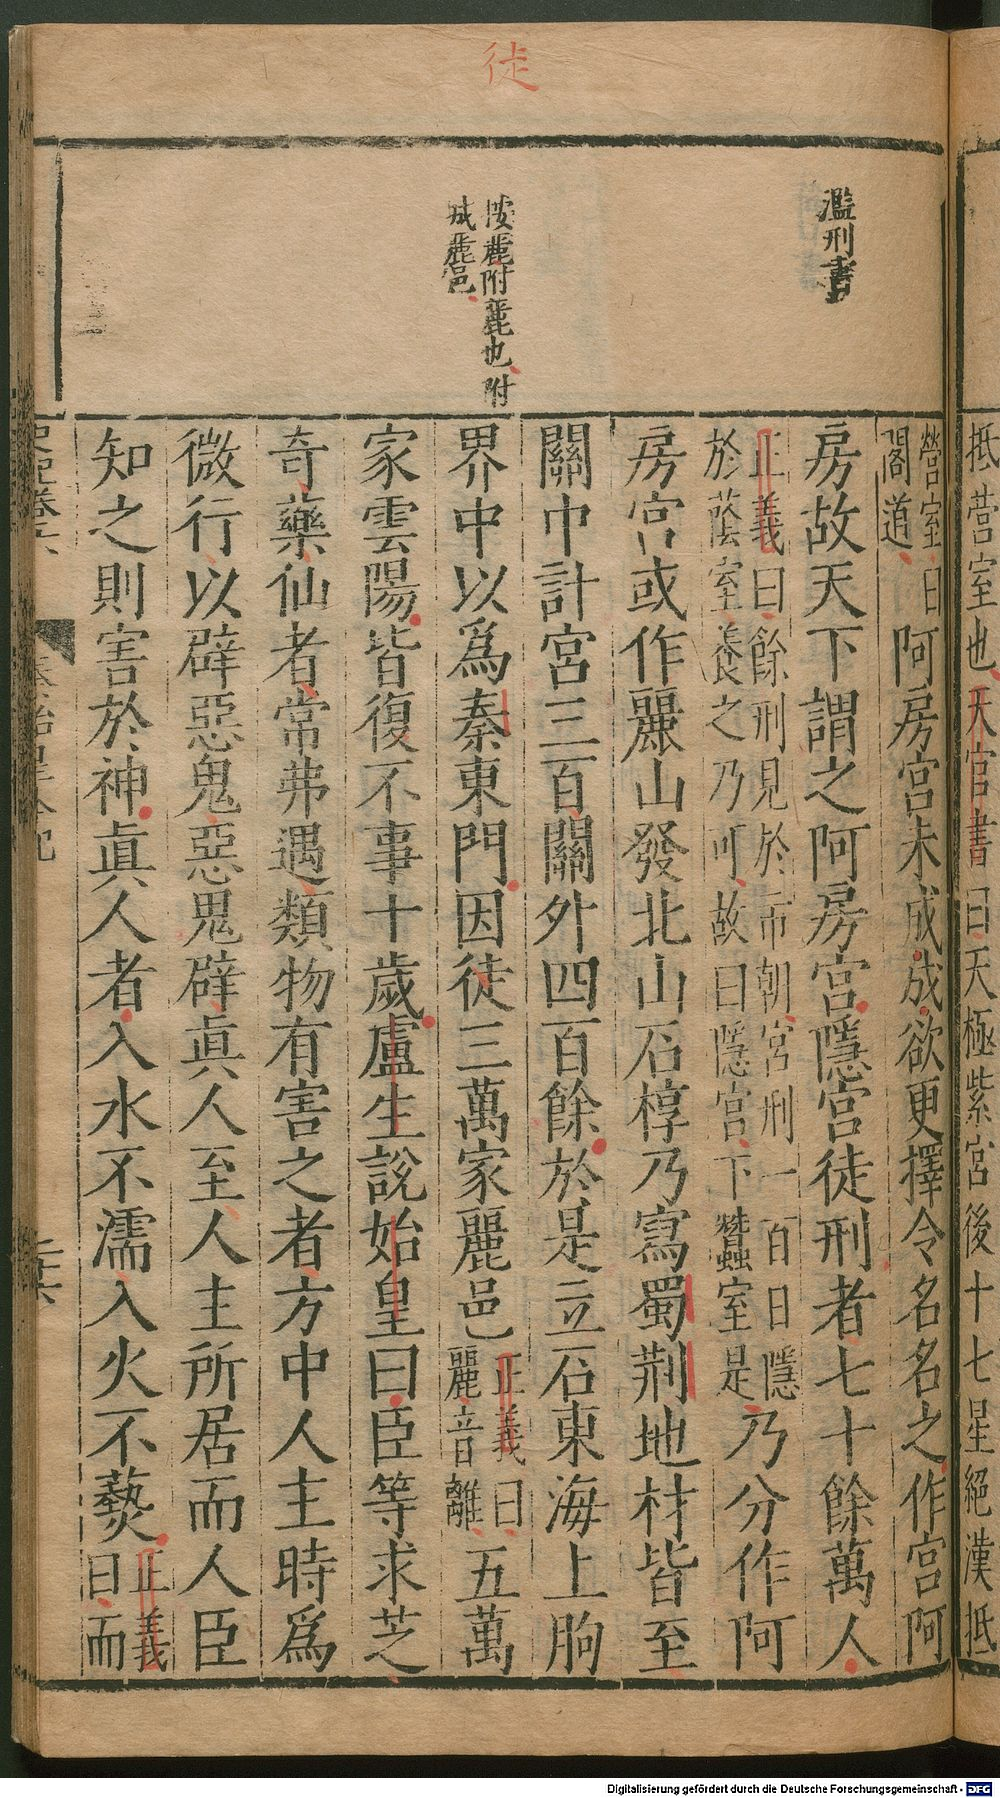 徒
濫刑書
按麗附麗也附
城麗邑
抵營室也天官書曰天極紫宮後十七星絕漢抵
營室曰
閣道
阿房宮未成成欲更擇令名名之作宮阿
房故天下謂之阿房宮隱宮徒刑者七十餘萬人
正義曰餘刑見於市朝宮刑一百日隱
於蔭室養之乃可故曰隱宮下蠶室是
乃分作阿
房宮或作麗山發北山石椁乃寫蜀荆地材皆至
關中計宮三百關外四百餘於是立石東海上朐
界中以爲秦東門因徙三萬家麗邑
正義曰
麗音離
五萬
家雲陽皆復不事十歲盧生說始皇曰臣等求芝
奇藥仙者常弗遇類物有害之者方中人主時爲
微行以辟惡鬼惡鬼辟真人至人主所居而人臣
知之則害於神眞人者入水不濡入火不爇
正義
曰而
Digitalisierung gefördert durch die Deutsche Forschungsgemeinschaft - DFG